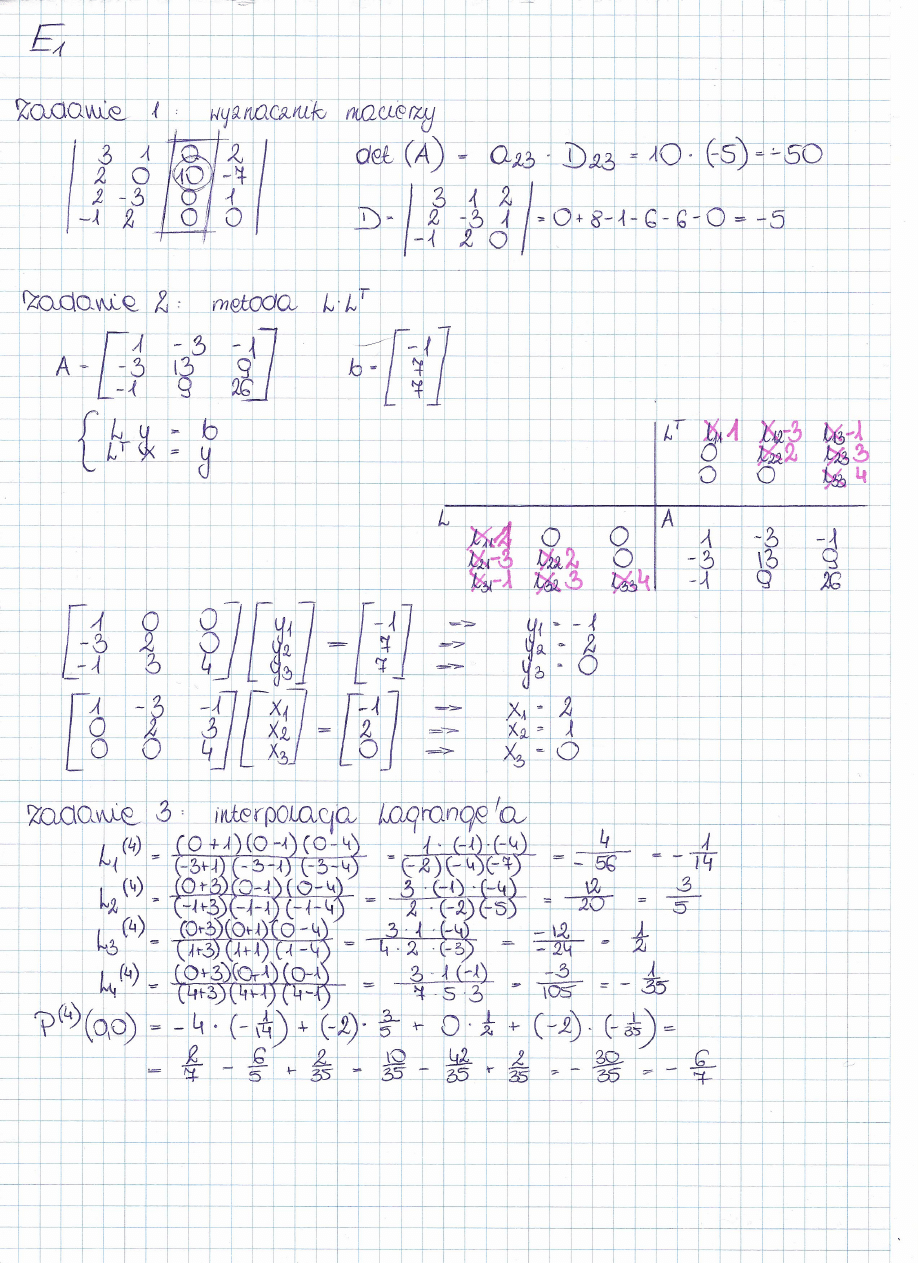 E1
Zadanie 1: wyznacznik macierzy
| 3 1 0 2 |
| 2 0 10 -7 |
| 2 -3 0 1 |
| -1 2 0 0 |
det (A) = a23 · D23 = 10 · (-5) = -50
D = | 3 1 2 |
| 2 -3 1 | = 0+8-1-6-6-0 = -5
| -1 2 0 |
Zadanie 2: metoda L·L^T
A = [ 1 -3 -1 ] b = [ -1 ]
[ -3 13 9 ] [ 7 ]
[ -1 9 26 ] [ 7 ]
{ L y = b
L^T x = y
L^T l11 1 l12 -3 l13 -1
0 l22 2 l23 3
0 0 l33 4
L A
l11 1 0 0 1 -3 -1
l21 -3 l22 2 0 -3 13 9
l31 -1 l32 3 l33 4 -1 9 26
[ 1 0 0 ] [ y1 ] = [ -1 ] => y1 = -1
[ -3 2 0 ] [ y2 ] [ 7 ] => y2 = 2
[ -1 3 4 ] [ y3 ] [ 7 ] => y3 = 0
[ 1 -3 -1 ] [ x1 ] = [ -1 ] => x1 = 2
[ 0 2 3 ] [ x2 ] [ 2 ] => x2 = 1
[ 0 0 4 ] [ x3 ] [ 0 ] => x3 = 0
Zadanie 3: interpolacja Lagrange'a
L1^(4) = (0+1)(0-1)(0-4) / (-3+1)(-3-1)(-3-4) = 1·(-1)·(-4) / (-2)(-4)(-7) = 4 / -56 = - 1/14
L2^(4) = (0+3)(0-1)(0-4) / (-1+3)(-1-1)(-1-4) = 3·(-1)·(-4) / 2·(-2)(-5) = 12/20 = 3/5
L3^(4) = (0+3)(0+1)(0-4) / (1+3)(1+1)(1-4) = 3·1·(-4) / 4·2·(-3) = -12 / -24 = 1/2
L4^(4) = (0+3)(0+1)(0-1) / (4+3)(4+1)(4-1) = 3·1(-1) / 7·5·3 = -3 / 105 = - 1/35
P^(4)(0,0) = -4·(-1/14) + (-2)·3/5 + 0·1/2 + (-2)·(-1/35) =
= 2/7 - 6/5 + 2/35 = 10/35 - 42/35 + 2/35 = - 30/35 = - 6/7